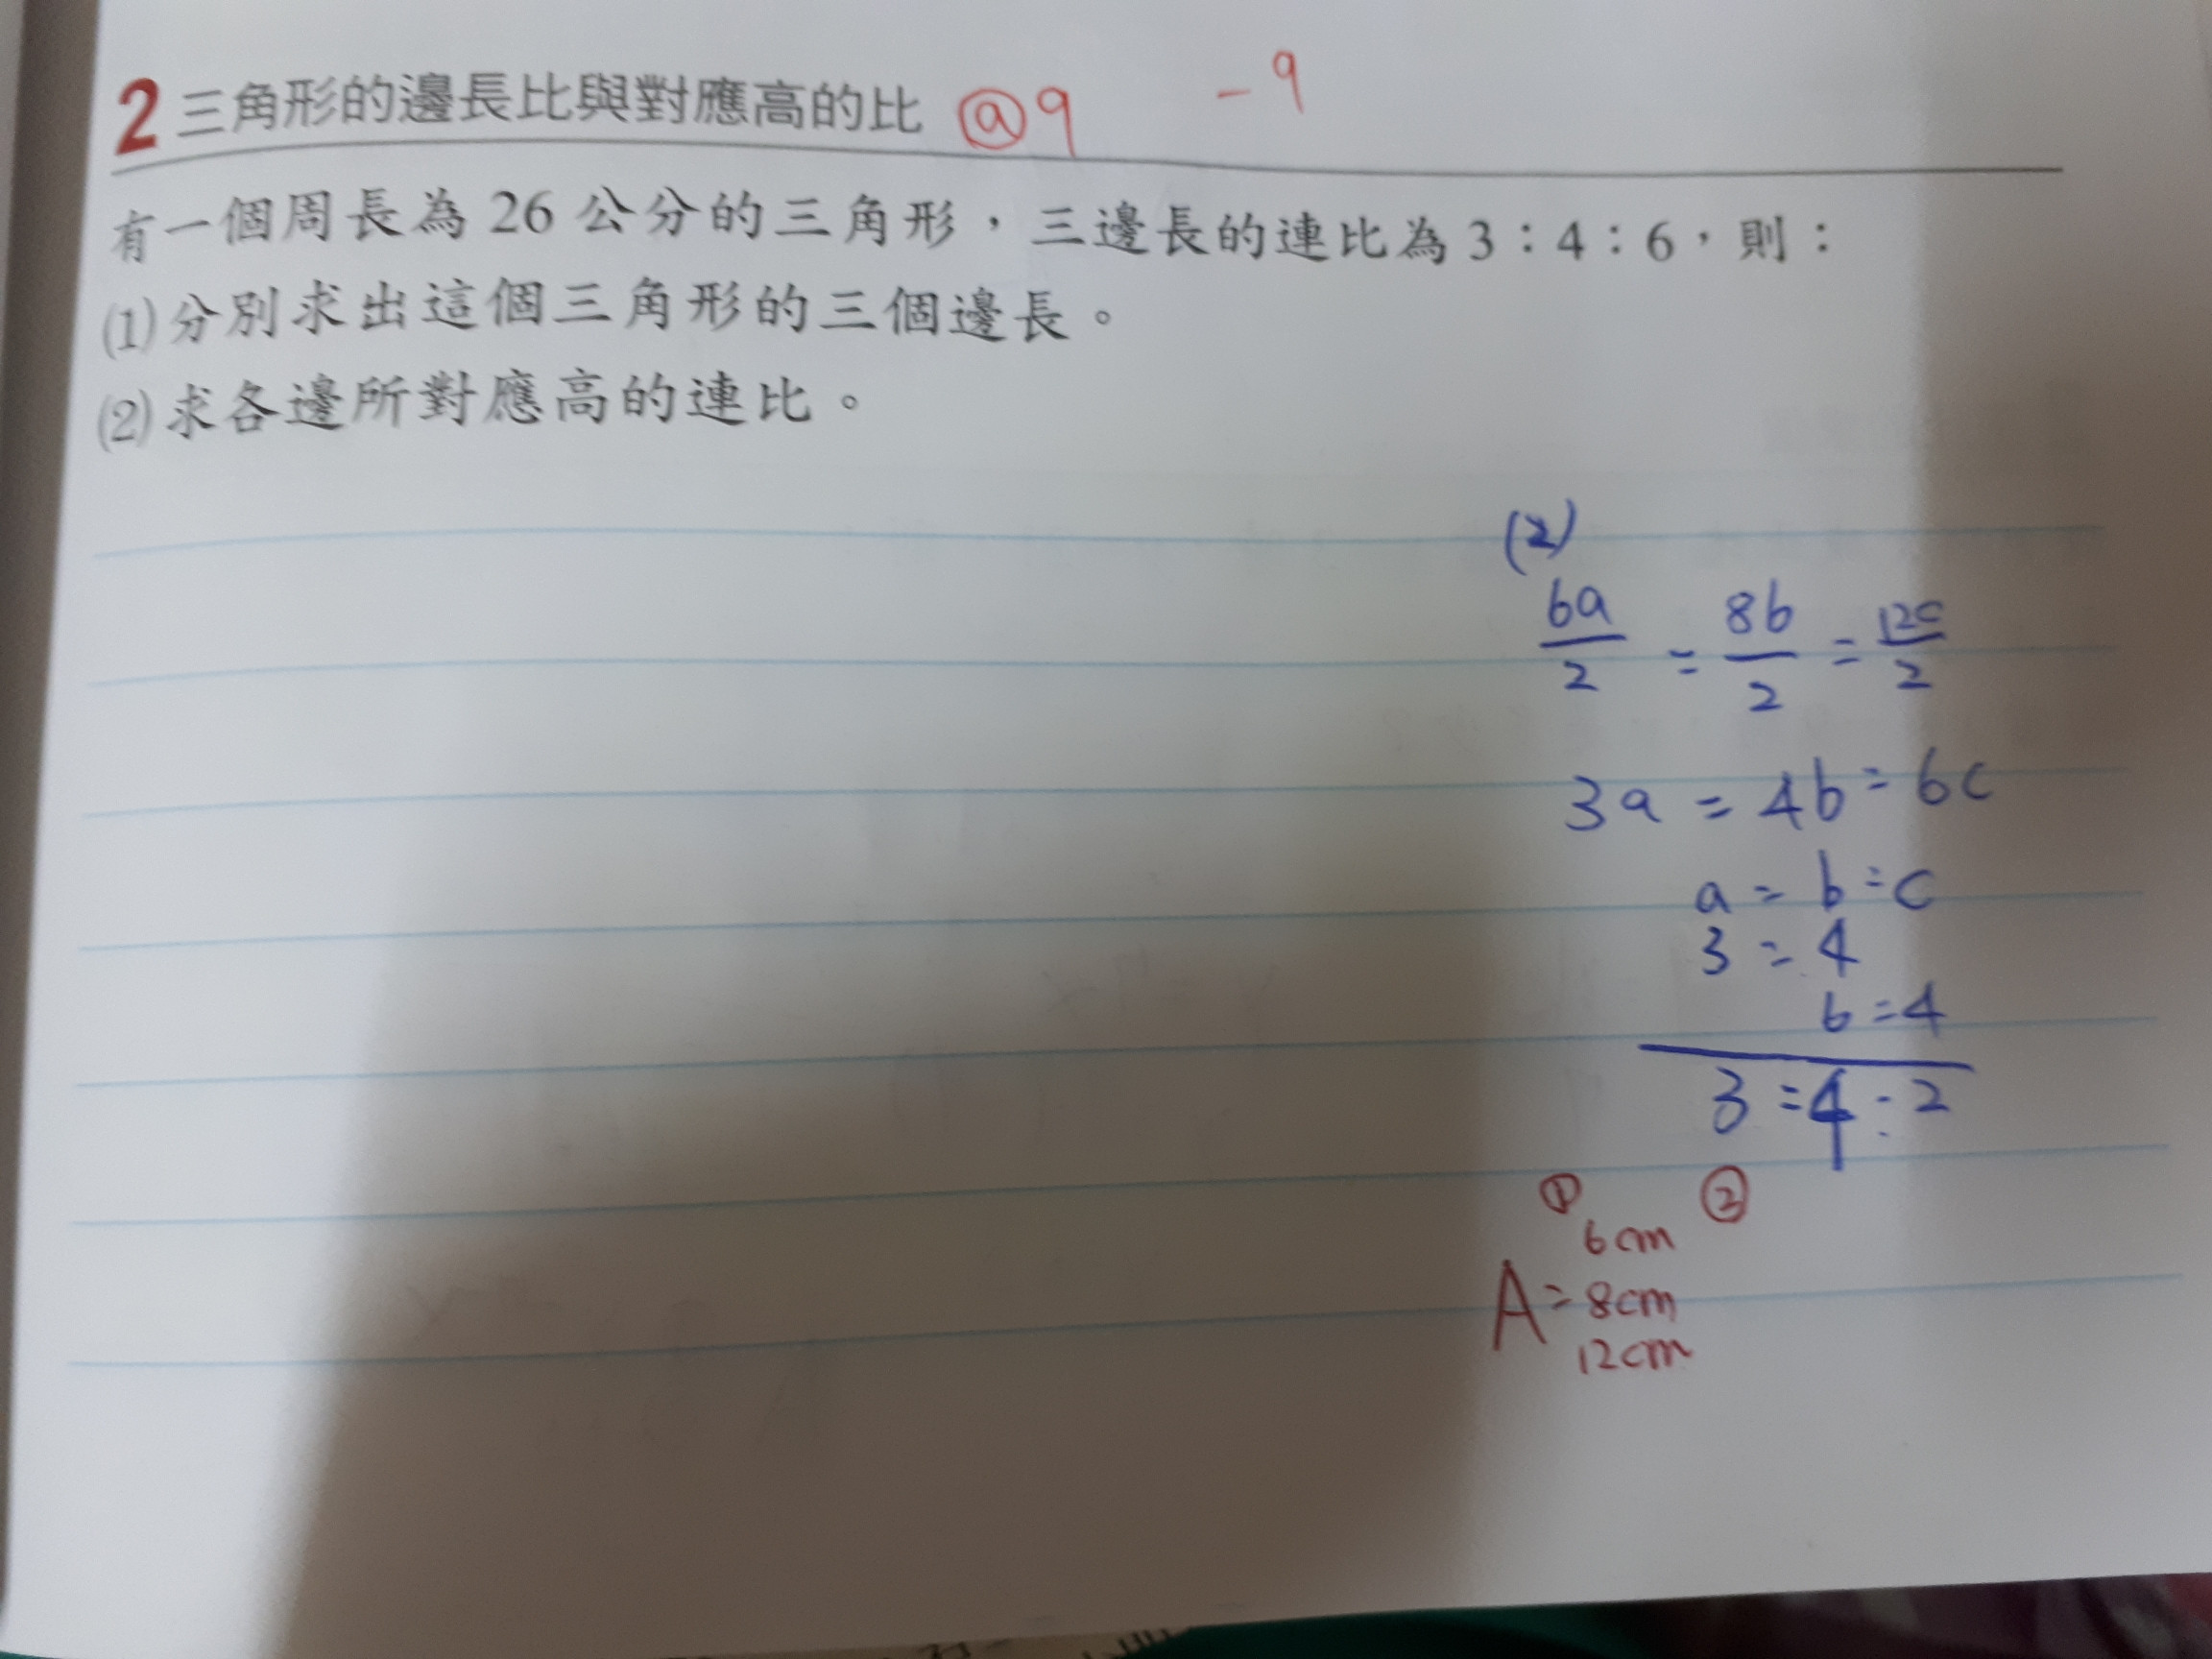 2 三角形的邊長比與對應高的比 @9 -9
有一個周長為 26 公分的三角形，三邊長的連比為 3：4：6，則：
(1) 分別求出這個三角形的三個邊長。
(2) 求各邊所對應高的連比。
(2)
6a/2 = 8b/2 = 12c/2
3a = 4b = 6c
a : b : c
3 : 4
6 : 4
3 : 4 : 2
① ②
6cm
A = 8cm
12cm